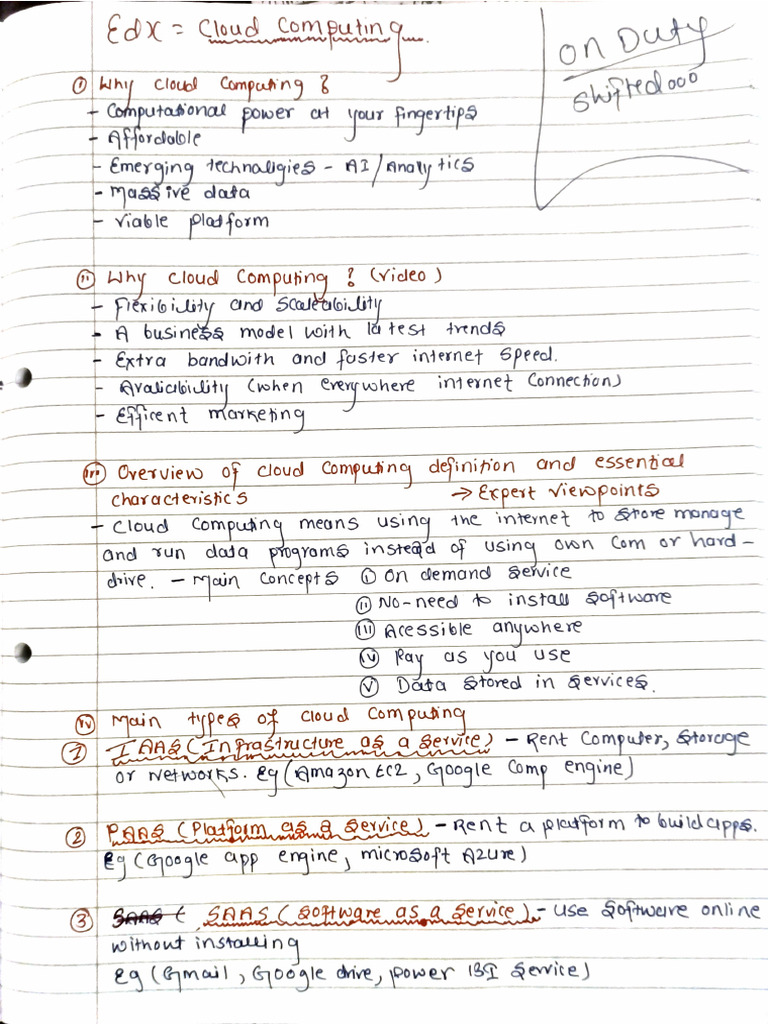 Edx = Cloud Computing
On Duty
Shifted ooo
① Why Cloud Computing ?
- Computational power at your fingertips
- Affordable
- Emerging technaligies - AI/Analytics
- Massive data
- Viable Platform
ⓘⓘ Why Cloud Computing ? (Video)
- Flexibility and Scaleability
- A business model with latest trends
- Extra bandwith and faster internet Speed.
- Avaliability (when everywhere internet Connection)
- Efficent marketing
ⓘⓘⓘ Overview of Cloud Computing definition and essential
characteristics → Expert Viewpoints
- Cloud Computing means using the internet to store manage
and run data programs instead of using own Com or hard-
drive. - Main Concepts ⓘ On demand Service
ⓘⓘ No-need to install Software
ⓘⓘⓘ Acessible anywhere
ⓘⓥ Pay as you use
Ⓥ Data Stored in Services.
ⓘⓥ Main types of Cloud Computing
① IAAS (Infrastructure as a Service) - Rent Computer, Storage
or Networks. Eg (Amazon EC2, Google Comp engine)
② PAAS (Platform as a Service) - Rent a platform to build apps.
Eg (Google app engine, microsoft Azure)
③ SAAS ( SAAS (Software as a Service) - Use Software online
without installing
Eg (Gmail, Google drive, power BI Service)